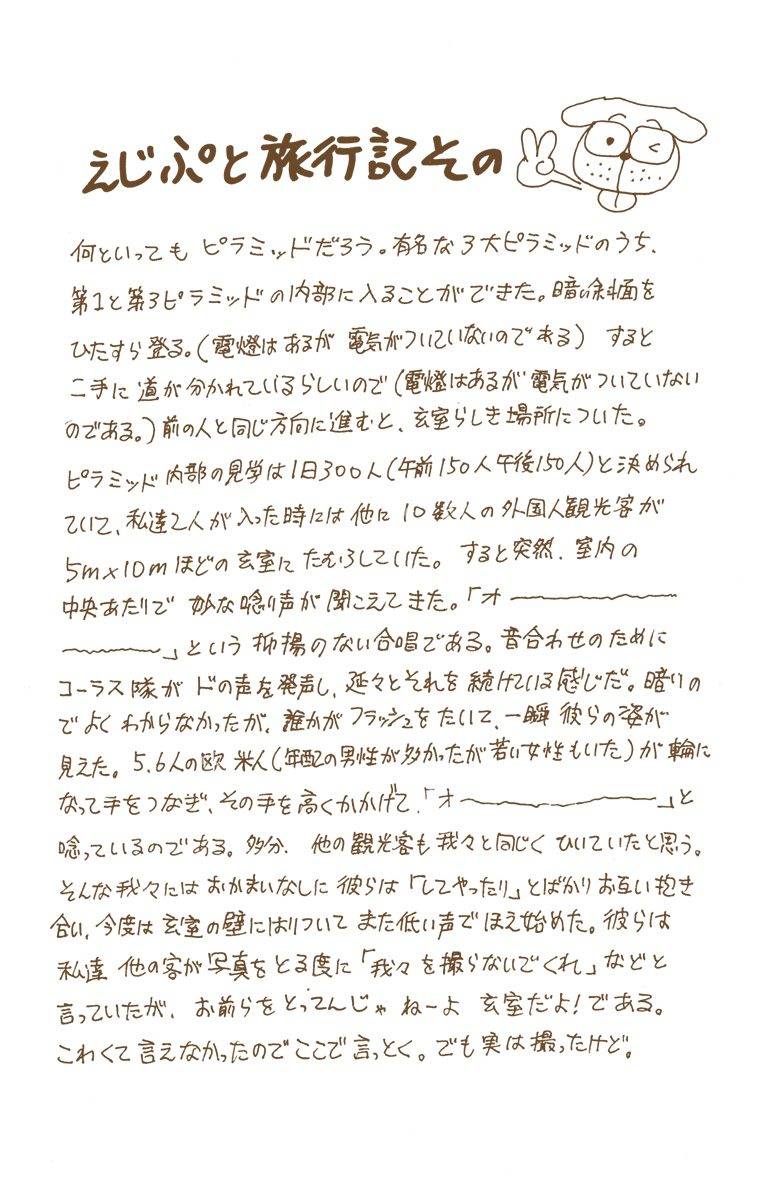 えじぷと旅行記その
何といっても ピラミッドだろう。有名な3大ピラミッドのうち、
第1と第3ピラミッドの内部に入ることができた。暗い斜面を
ひたすら登る。(電燈はあるが 電気がついていないのである) すると
二手に道が分かれているらしいので(電燈はあるが電気がついていない
のである。)前の人と同じ方向に進むと、玄室らしき場所についた。
ピラミッド内部の見学は1日300人(午前150人午後150人)と決められ
ていて、私達2人が入った時には他に10数人の外国人観光客が
5m×10mほどの玄室にたむろしていた。 すると突然、室内の
中央あたりで 妙な唸り声が聞こえてきた。「オ〜〜〜〜〜
〜〜〜」という抑揚のない合唱である。音合わせのために
コーラス隊がドの声を発声し、延々とそれを続けている感じだ。暗いの
でよくわからなかったが、誰かがフラッシュをたいて、一瞬彼らの姿が
見えた。5.6人の欧米人(年配の男性が多かったが若い女性もいた)が輪に
なって手をつなぎ、その手を高くかかげて、「オ〜〜〜〜〜」と
唸っているのである。多分、他の観光客も我々と同じくひいていたと思う。
そんな我々にはおかまいなしに彼らは「してやったり」とばかりお互い抱き
合い、今度は玄室の壁にはりついてまた低い声でほえ始めた。彼らは
私達 他の客が写真をとる度に「我々を撮らないでくれ」などと
言っていたが、お前らをとってんじゃ ねーよ 玄室だよ!である。
こわくて言えなかったのでここで言っとく。でも実は撮ったけど。